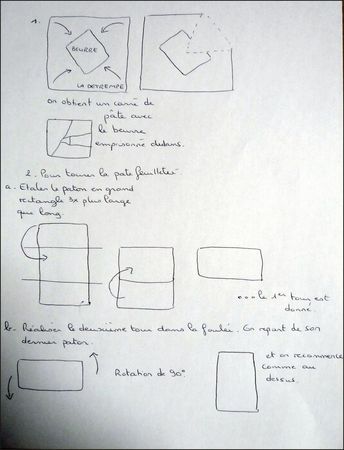 1.
BEURRE
LA DETREMPE
on obtient un carré de
pâte avec
le beurre
emprisonné dedans.
2. Pour tourer la pate feuilletée
a. Etaler le paton en grand
rectangle 3x plus large
que long.
...le 1er tour est
donné.
b. Réaliser le deuxième tour dans la foulée. On repart de son
dernier paton.
Rotation de 90°
et on recommence
comme au
dessus.